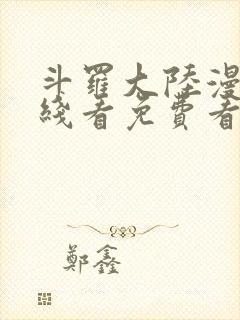 斗羅大陸漫
綫看免費看
鄭鑫